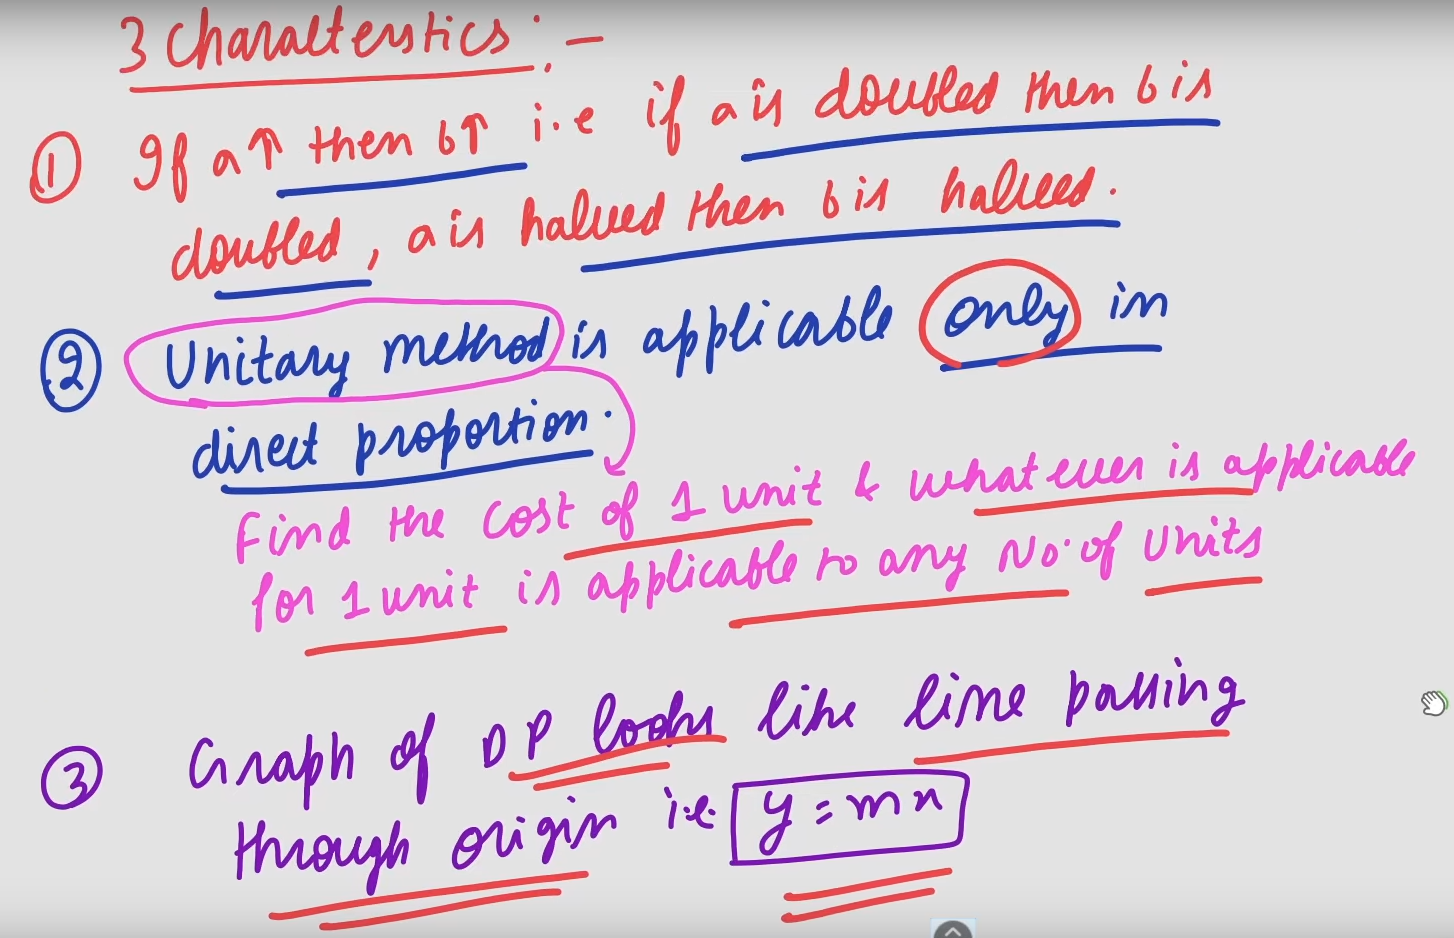 3 Characterstics :-
① If a↑ then b↑ i.e if a is doubled then b is
doubled, a is halved then b is halved.
② Unitary method is applicable only in
direct proportion.
Find the cost of 1 unit & whatever is applicable
for 1 unit is applicable to any No. of Units
③ Graph of DP looks like line passing
through origin i.e. y = mx